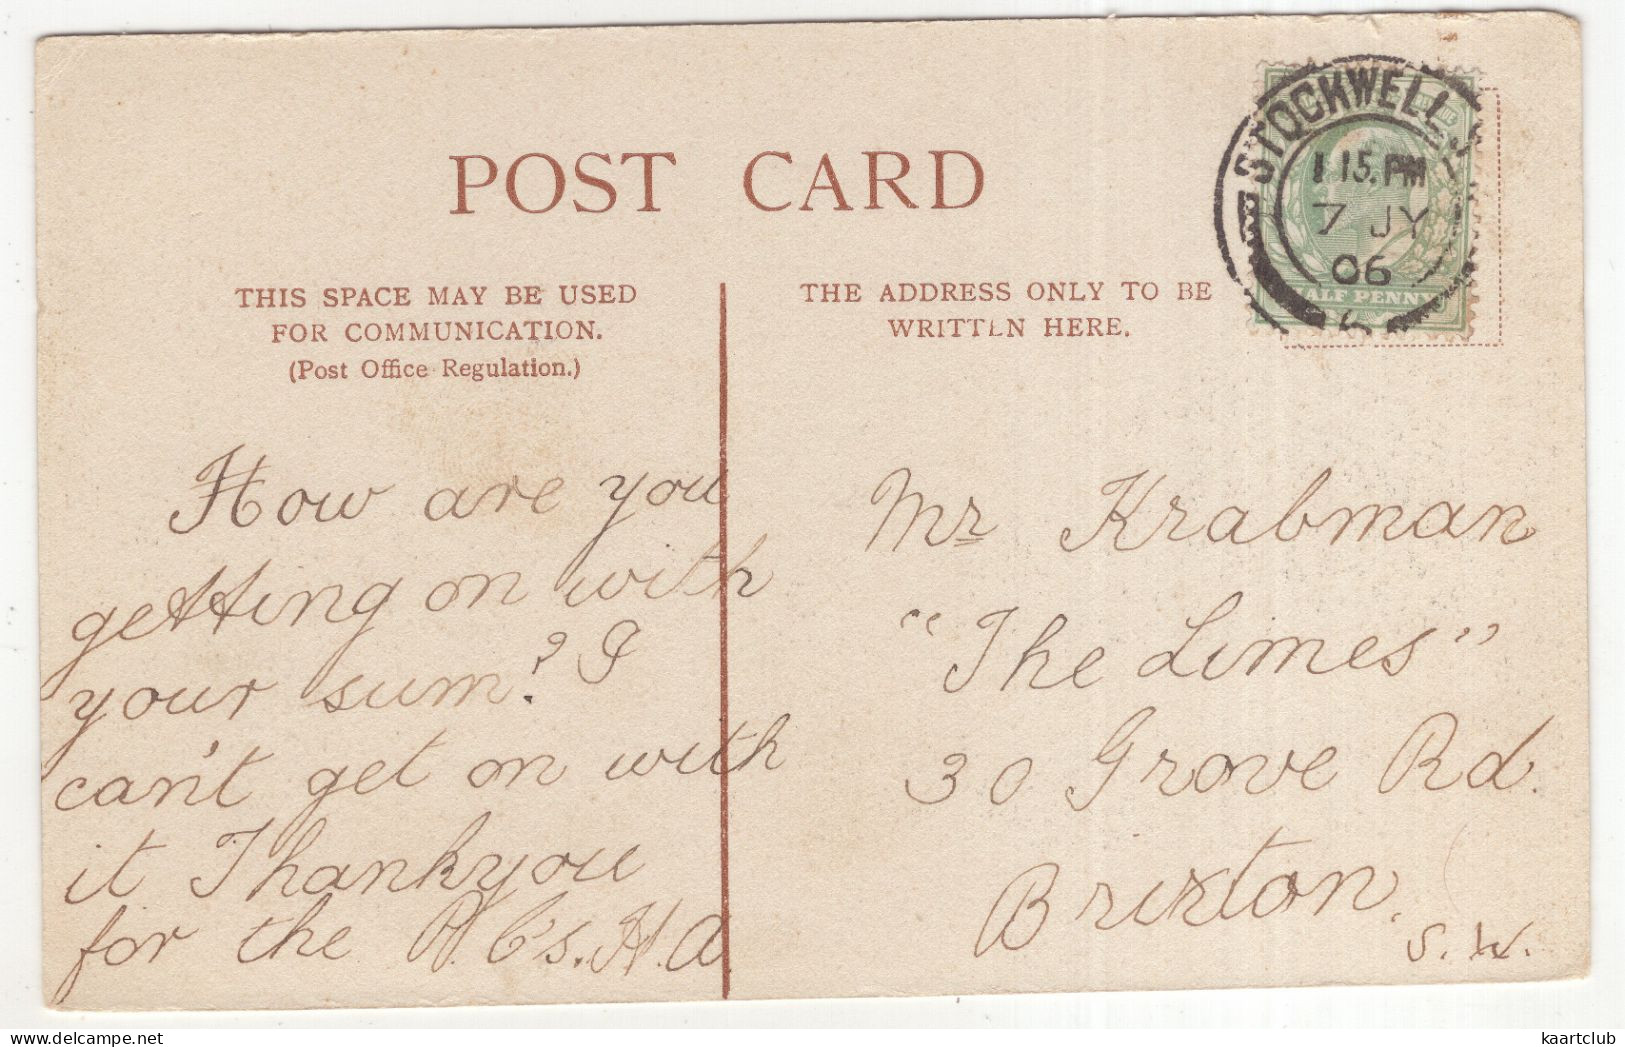 POST CARD
THIS SPACE MAY BE USED
FOR COMMUNICATION.
(Post Office Regulation.)
THE ADDRESS ONLY TO BE
WRITTEN HERE.
STOCKWELL
1 15. PM
7 JY
06
HALF PENNY
How are you
getting on with
your sum? I
can't get on with
it Thankyou
for the P.C's. H.A.
Mr Krabman
"The Limes"
30 Grove Rd.
Brixton.
S.W.
delcampe.net
kaartclub